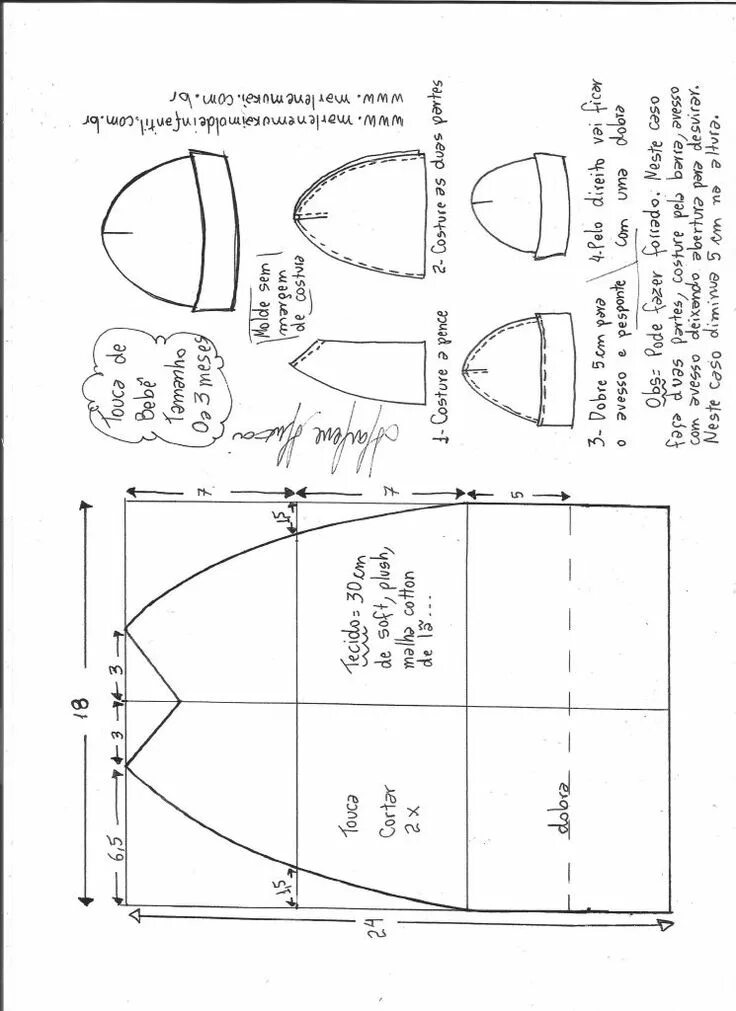 Touca de
Bebê
Tamanho
0a3 meses
www.marlenemukai.com.br
www.marlenemukaimoldeinfantil,com.br
Molde sem
margem
de costura
Marlene Mukai
1-Costure a pence
2- Costure as duas partes
3- Dobre 5cm para
o avesso e pesponte
4.Pelo direito vai ficar
com uma dobra
Obs= Pode fazer forrado. Neste caso
faça duas partes, costure pela barra, avesso
com avesso deixando abertura para desvirar.
Neste caso diminua 5 cm na altura.
18
6,5
3
3
7
7
5
1,5
1,5
24
Tecido= 30cm
de soft, plush,
malha cotton
de lã...
Touca
Cortar
2x
dobra